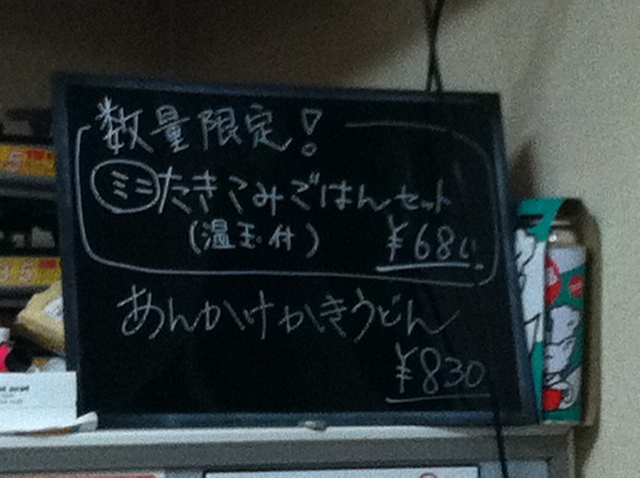 数量限定!
ミニたきこみごはんセット
(温玉付)
¥680
あんかけかきうどん
¥830